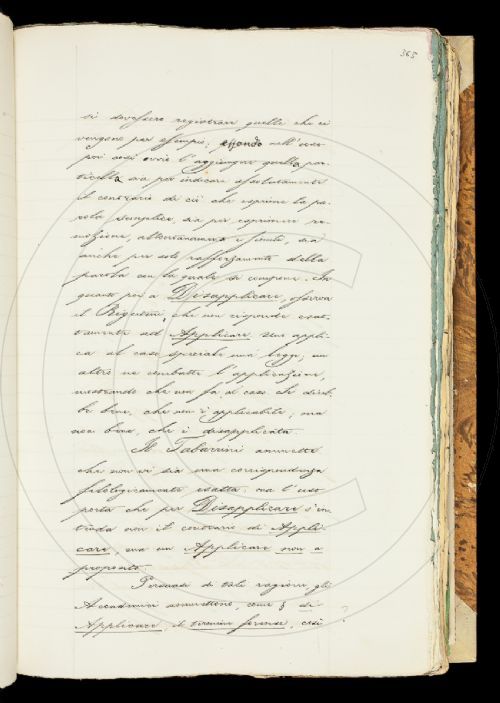 365
si dovessero registrare quelle che ci
vengono per esempio; essendo nell'uso
poi assai ovvio l'aggiungere quella par-
ticella, sia per indicare esattamente
il contrario di ciò che esprime la pa-
rola semplice, sia per esprimere re-
mozione, allontanamento e simili, sia
anche per solo rafforzamento della
parola con la quale si compone. In
quanto poi a Disapplicare, osserva
il Rigutini, che non risponde esat-
tamente ad Applicare. Uno appli-
ca al caso speciale una legge; un
altro ne combatte l'applicazione,
mostrando che non fa al caso che
be bene, che non è applicabile; ma
non bene, che è disapplicata.
Il Tabarrini ammette
che non vi sia una corrispondenza
filologicamente esatta: ma l'uso
porta che per Disapplicare s'in-
tenda non il contrario di Appli-
care, ma un Applicare non a
proposito.
Persuasi di tali ragioni, gli
Accademici ammettono come § di
Applicare, il termine forense, così ?